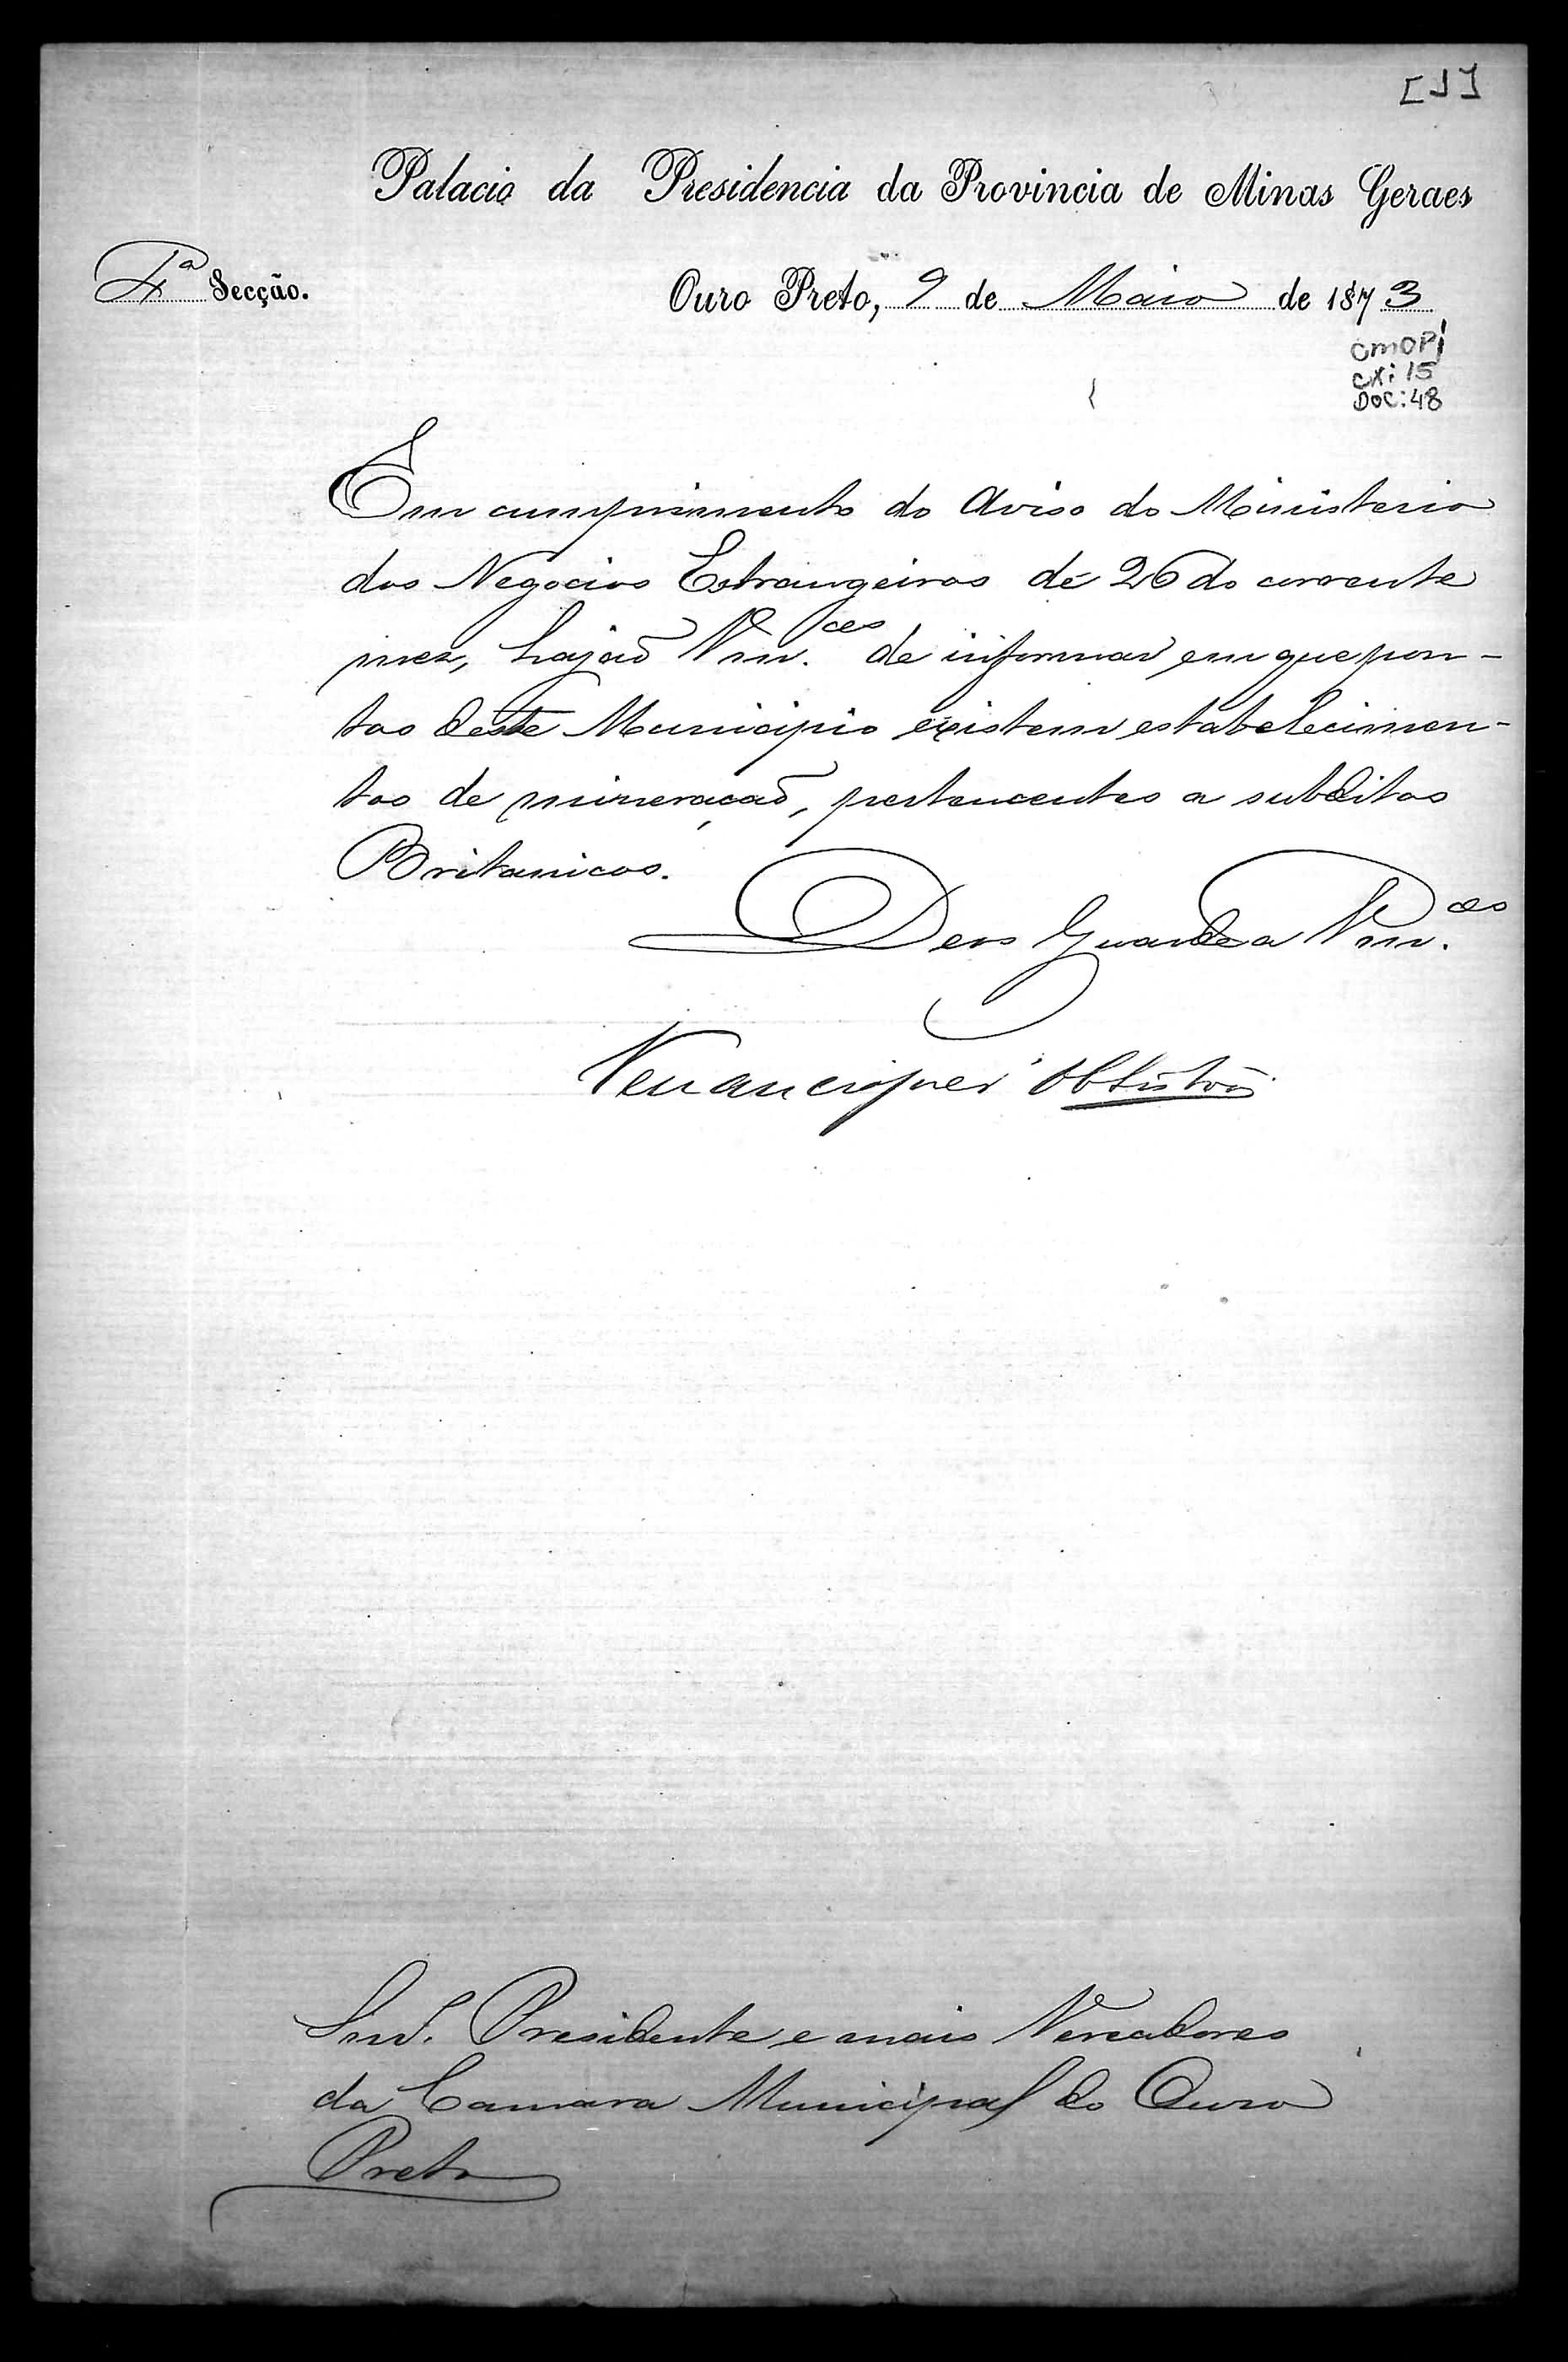 [1]
Palacio da Presidencia da Provincia de Minas Geraes
4ª Secção.
Ouro Preto, 9 de Maio de 1873
CMOP
CX: 15
DOC: 48
Em cumprimento do Aviso do Ministerio
dos Negocios Estrangeiros de 26 do corrente
mez, hajaõ Vm.ces de informar em que pon-
tos deste Municipio existem estabelecimen-
tos de mineraçaõ, pertencentes a subditos
Britanicos.
Deos Guarde a Vm.ces
Venancio
Snr. Presidente e mais Vereadores
da Camara Municipal do Ouro
Preto